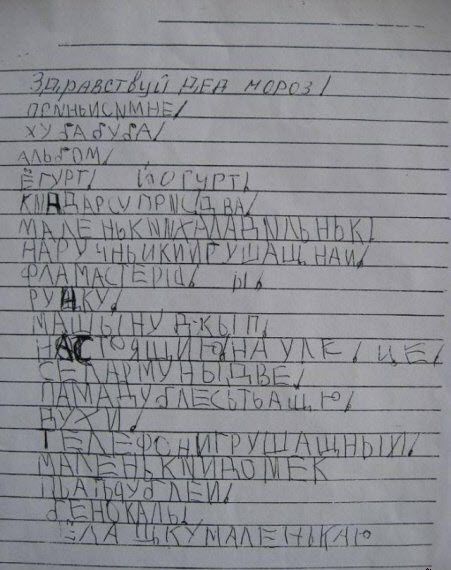 ЗДРАВСТВУЙ ДЕД МОРОЗ!
ПРИНЬИСИМНЕ!
ХУБАБУБА!
АЛЬБОМ!
ЁГУРТ! ЙОГУРТ!
КИНДАРСУПРИСДВА!
МАЛЕНЬКИИХАЛАДИЛЬНЬК!
НАРУЧНЬИКИИГРУШАЩНАИ!
ФЛАМАСТЕРИ Ы!
РУЧКУ!
МАШЫНУ ДЖЫП!
НАСТОЯЩИГО НА УЛЕ! ЦЕ!
СЕЛАРМУНЫДВЕ!
ПАМАДУБЛЕСЬТЬАЩЮ!
ВУХИ!
ТЕЛЕФОНИГРУШАЩНЫИ!
МАЛЕНЬКИИДОМЕК
ПЬАТЬРУБЛЕИ!
БЕНОКАЛЫ!
ЁЛАЩКУМАЛЕНКАЮ